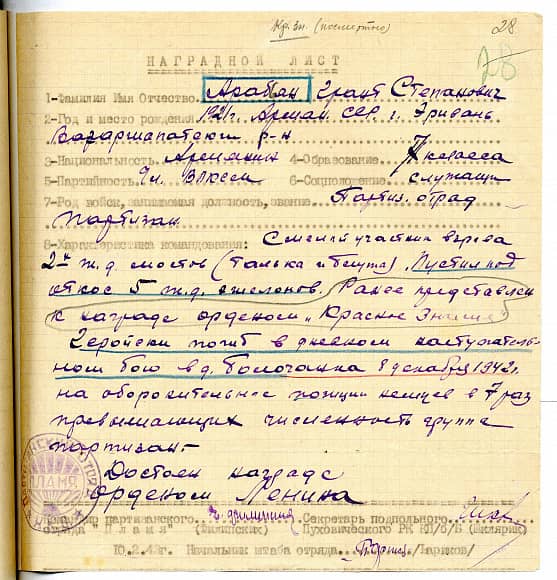 Кр. Зн. (посмертно)
28
28
НАГРАДНОЙ ЛИСТ
1-Фамилия Имя Отчество. Арабян Грант Степанович
2-Год и место рождения. 1921 г. Армян. ССР. г. Эривань
Вагаршапатский р-н
3-Национальность. Армянин 4-Образование. 7 класса
5-Партийность. Чл. ВЛКСМ 6-Соцположение. служащий
7-Род войск, занимаемая должность, звание. Партиз. отряд
партизан
8-Характеристика командования: Смелый участник взрыва
2-х ж.д. мостов (Талька и ). Пустил под
откос 5 ж.д. эшелонов. Ранее представлен
к награде орденом "Красное Знамя"
Геройски погиб в дневном наступатель-
ном бою в д. 8 декабря 1942 г.
на оборонительные позиции немцев в 7 раз
превышающих численность группы
партизан-
Достоин награде
Орденом Ленина
ПЛАМЯ
Командир партизанского Секретарь подпольного
отряда "Пламя" (Филипских) Пуховического РК КП/б/Б (Шкляриk)
10.2.43г. Начальник штаба отряда /Чариков/